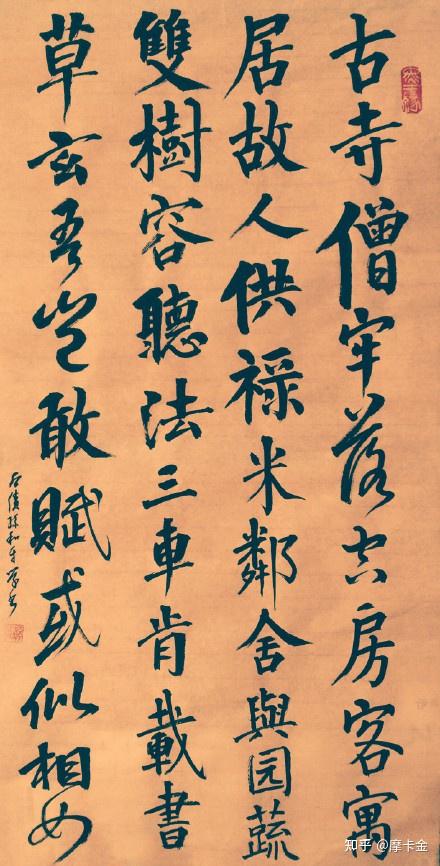 古寺僧牢落空房客寓
居故人供禄米鄰舍與园蔬
雙樹容聽法三車肯載書
草玄吾豈敢賦或似相如
知乎 @摩卡金